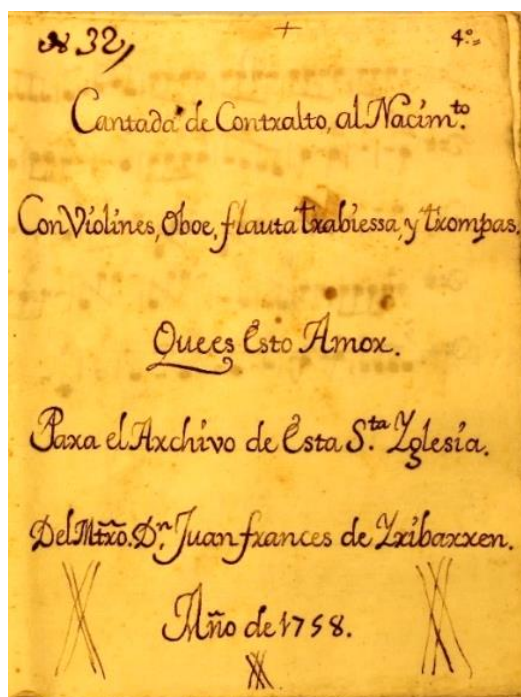 N 32, + 4º=
Cantada de Contralto, al Nacim.to
Con Violines, Oboe, flauta trabiessa, y trompas.
Que es Esto Amor.
Para el Archivo de Esta S.ta Yglesia.
Del Mtrõ. D.n Juan frances de Yribarren.
Año de 1758.